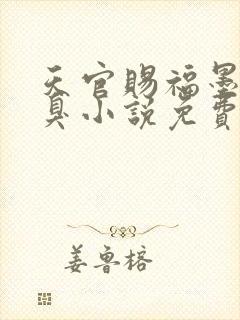 天官赐福墨
臭小说免费
姜鲁榕